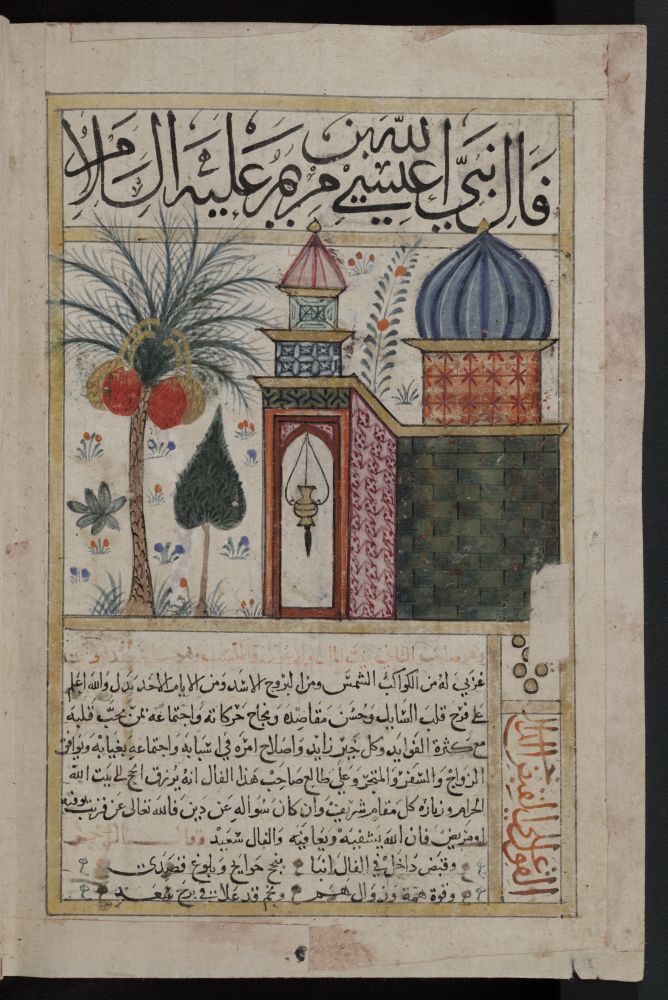 فال نبي الله عيسى بن مريم عليه السلام
غربي له من الكواكب الشمس ومن البروج الاسد ومن الايام الاحد يدل والله اعلم
على فرح قلب السايل وحسن مقاصده ونجاح حركاته واجتماعه بمن يحب قلبه
مع كثرة الفوايد وكل خير زايد واصلاح امره في اسبابه واجتماعه بغيابه ويوافق
الزواج والسفر والمتجر وعلى طالع صاحب هذا الفال انه يرزق الحج الى بيت الله
الحرام وزيارة كل مقام شريف وان كان سواله عن دين فالله تعالى عن قريب يوفيه
او مريض فان الله يشفيه ويعافيه والفال سعيد
وقبض داخل في الفال انبا بنجح حوايج وبلوغ قصدي
وقوة همة وزوال هم ونجم قد علا في برج سعد
القول على القبض الداخل